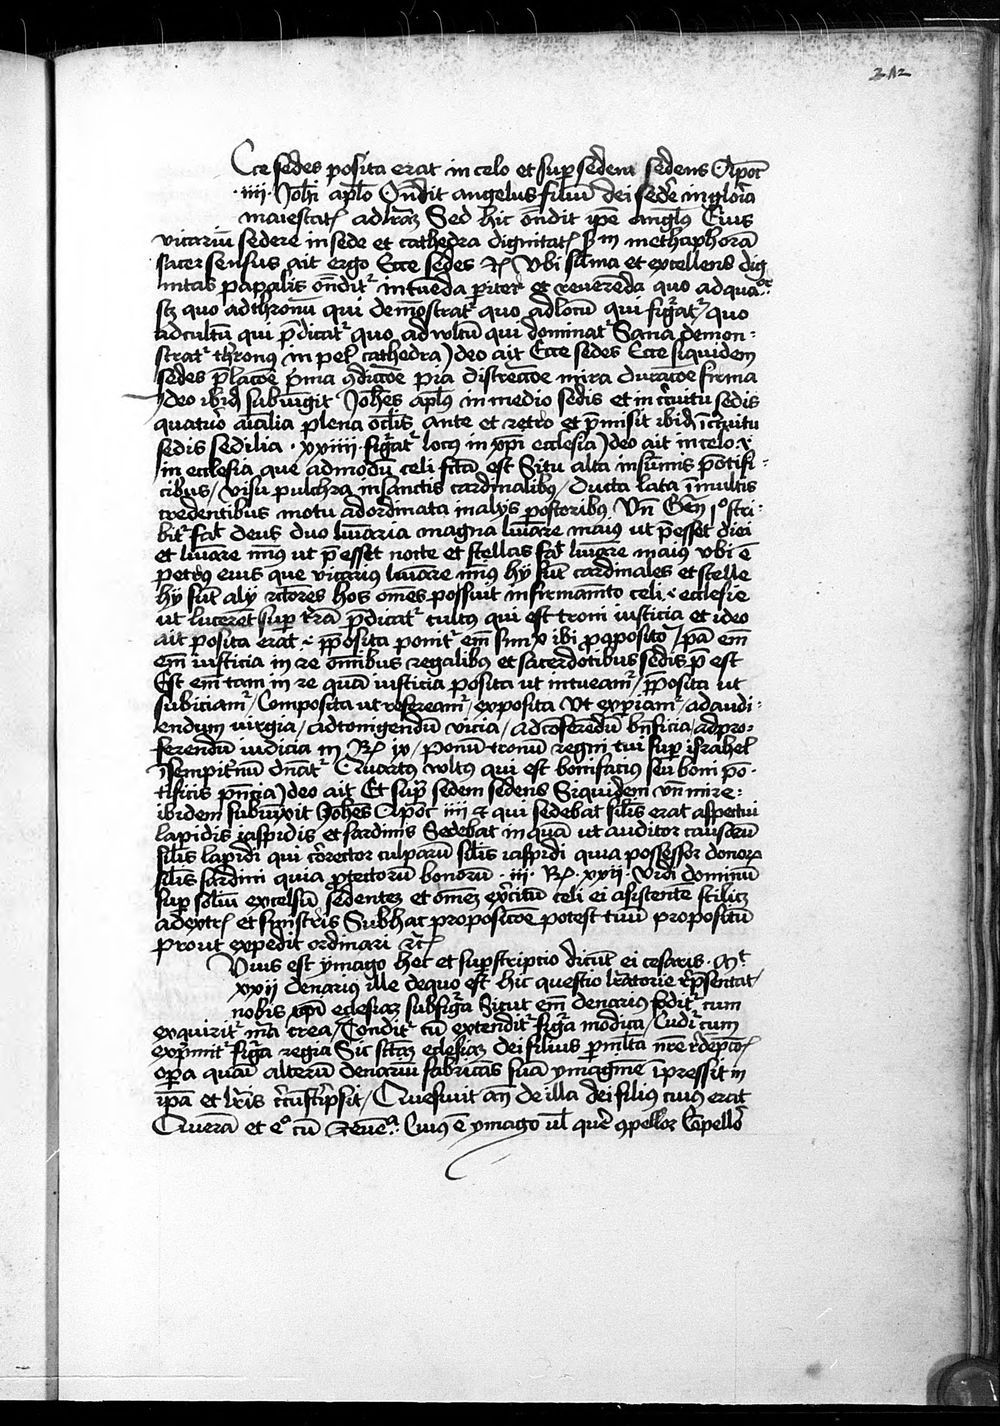 212
Cce sedes posita erat in celo et sup sedem sedens Apoc
·iiii· Johi aplo Ondit angelus filiu dei sede in gloria
maiestat Sed hic ondit ipe anglus Eius
vicariu sedere in sede et cathedra dignitat in methaphora
sacer sensus ait ergo Ecce sedes Vbi silma et excellens dig
nitas papalis ondit intueda pariter et reverenda quo ad qua
scz quo ad thronu qui demostrat quo ad locu qui figat quo
ad cultu qui pdicat quo ad voltu qui dominat Sacra demon:
strat thronus cathedra Ideo ait Ecce sedes Ecce siquidem
sedes plaçoe pima distreccoe mira duracoe firma
Ideo ibid subiungit Johes aplus in medio sedis et in circuitu sedis
quatuor aialia plena oclis ante et retro et pmisit ibid i circuitu
sedis sedilia · xxiiii · figat locus in xpi ecclesia Ideo ait in celo ·i·
in ecclesia que admodu celi scta est Situ alta in sumis potifi:
cibus / visu pulchra in sanctis cardinalibus / ducta lata i multis
credentibus motu adordinata in alijs pastoribus Vn Gen 1º scri:
bit fat deus duo luiaria magna luiare maius ut pesset diei
et luiare mius ut pesset nocte et stellas fat luiare maius ubi e
petrus eius que vicarius luiare mius hij sut cardinales et stelle
hij sut alij rectores hos omes possuit in firmamento celi ·i· ecclesie
ut lucerent sup tra pdicat cultus qui est troni iusticia et ideo
ait posita erat ·i· pposita ponit em ibi p apposito
em iusticia in re omnibus regalibus et sacerdotibus sedis p est
Est em tam in re qua iusticia posita ut intueamr / pposita ut
subiciamr / Composita ut refereamr / exposita Vt expiamr / ad audi:
endum / ad corrigendu vicia / ad coferedu bnficia / ad pro:
ferendu iudicia iii Rg ix / Ponu tronu regni tui sup israhel
i sempitnu Quartus voltus qui est bonifacius seu boni po:
tificis pncia Ideo ait Et sup sedem sedens Siquidem
ibidem subiuxit Johes Apoc iiii et qui sedebat silis erat aspectui
lapidis iaspidis et sardinis Sedebat in qua ut auditor causaru
silis lapidi qui corrector culparu silis iaspidi quia possessor donor
silis sardini quia ptectoru bonoru · iii · Rg · xxii · Vidi dominu
sup soliu excelsu sedentez et omez exercitu celi ei asistente scilicz
a dextris et sinistris Sub hac proposicoe potest tuu propositu
prout expedit ordinari etc
Vius est ymago hec et superscriptio dicut ei cesaris · Mt
xxii denarius ille de quo est hic questio repsentat
nobis xpi eclesiaz sub figa Sicut em denarius codit cum
exquirit ma crea / Condit cu extendit figa modica / Cudit cum
exprimit figa regia Sic sctaz eclesiaz dei filius p
opa quasi alteru denariu fabricas sua ymagine ipressit in
ipa et lris circuscripsit / Quesivit an de illa dei filius cuius erat
Cuius e ymago ul